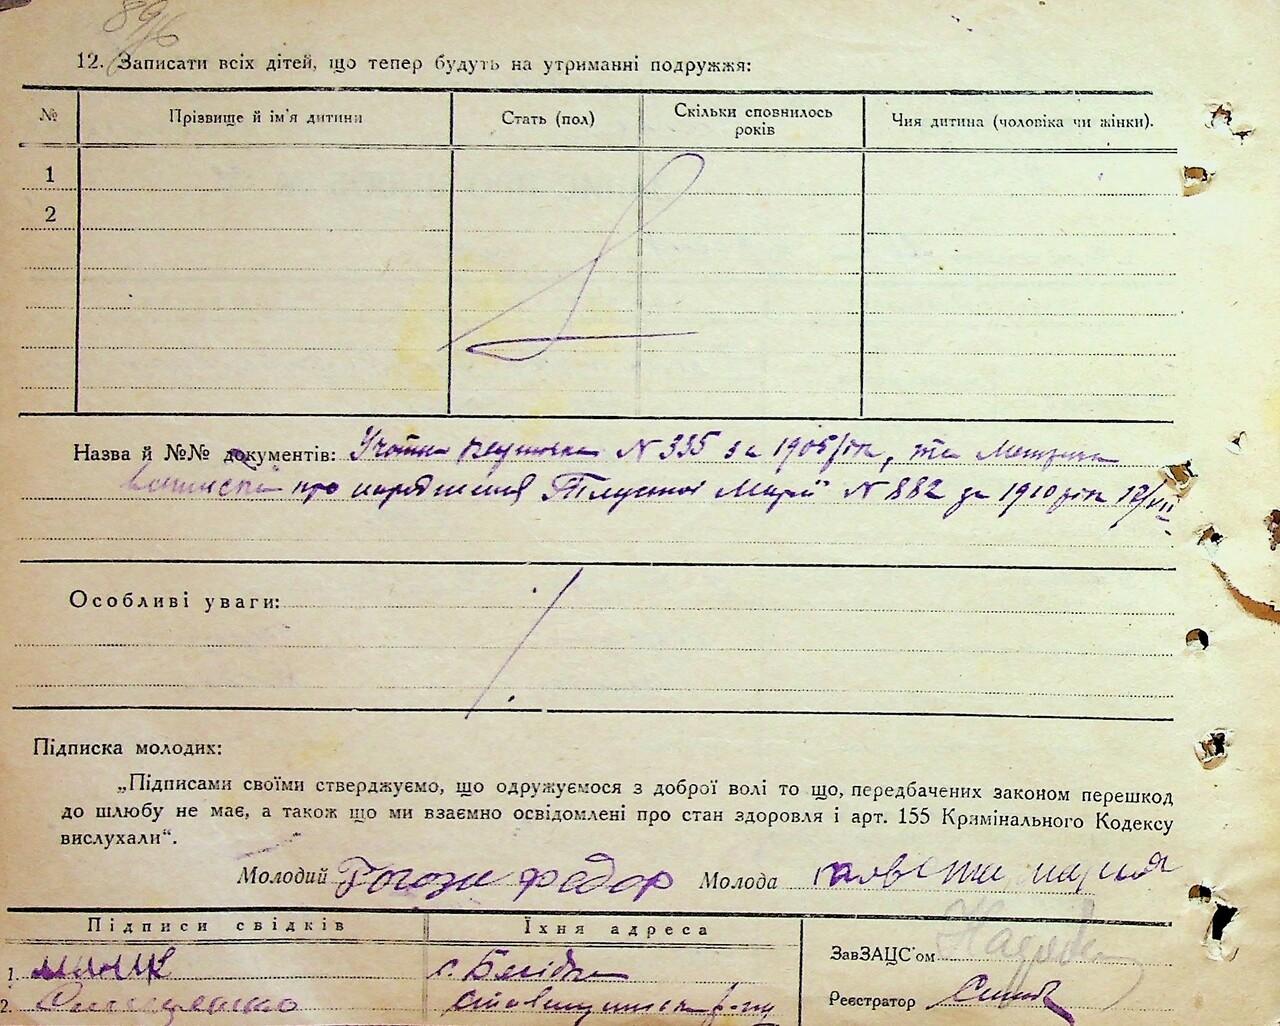 89/6
12. Записати всіх дітей, що тепер будуть на утриманні подружжя:
№ Прізвище й ім'я дитини Стать (пол) Скільки сповнилось років Чия дитина (чоловіка чи жінки).
1
2
Назва й №№ документів: Учотна N 335 за 1905 рік, та Метрична
виписка про народження Тлустої Марії N 882 за 1910 рік 12/VII
Особливі уваги:
Підписка молодих:
„Підписами своїми стверджуємо, що одружуємося з доброї волі то що, передбачених законом перешкод
до шлюбу не має, а також що ми взаємно освідомлені про стан здоровля і арт. 155 Кримінального Кодексу
вислухали“.
Молодий Рогоза Федор Молода мария
Підписи свідків Їхня адреса
ЗавЗАЦС'ом
1. с. Бесідка
2. Ставищанськ. р-ну
Реєстратор